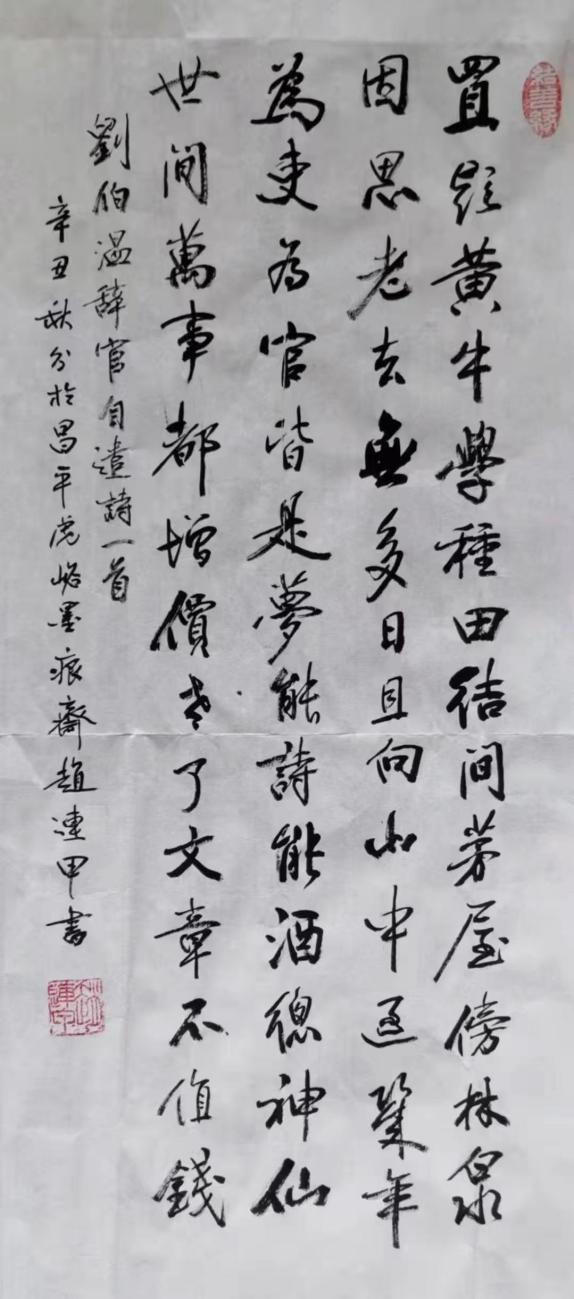 置頭黃牛學種田结间茅屋傍林泉
因思老去無多日且向山中過幾年
為吏为官皆是夢能詩能酒總神仙
世间萬事都增價老了文章不值錢
劉伯温辭官自遣詩一首
辛丑秋分於昌平虎峪墨痕齋趙連甲書